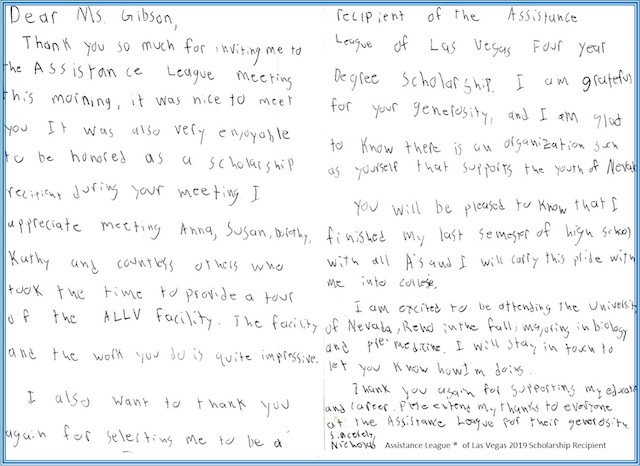 Dear Ms. Gibson,
Thank you so much for inviting me to
the Assistance League meeting
this morning, it was nice to meet
you It was also very enjoyable
to be honored as a scholarship
recipient during your meeting I
appreciate meeting Anna, Susan, Dorothy,
Kathy and countless others who
took the time to provide a tour
of the ALLV facility. The facility
and the work you do is quite impressive.
I also want to thank you
again for selecting me to be a
recipient of the Assistance
League of Las Vegas Four year
Degree Scholarship. I am grateful
for your generosity, and I am glad
to know there is an organization such
as yourself that supports the youth of Nevada
You will be pleased to know that I
finished my last semester of high school
with all A's and I will carry this pride with
me into college.
I am excited to be attending the University
of Nevada, Reno in the fall, majoring in biology
and pre medicine. I will stay in touch to
let you know how I'm doing.
Thank you again for supporting my education
and career. Please extend my thanks to everyone
at the Assistance League for their generosity.
Sincerely,
Nicholas
Assistance League ® of Las Vegas 2019 Scholarship Recipient